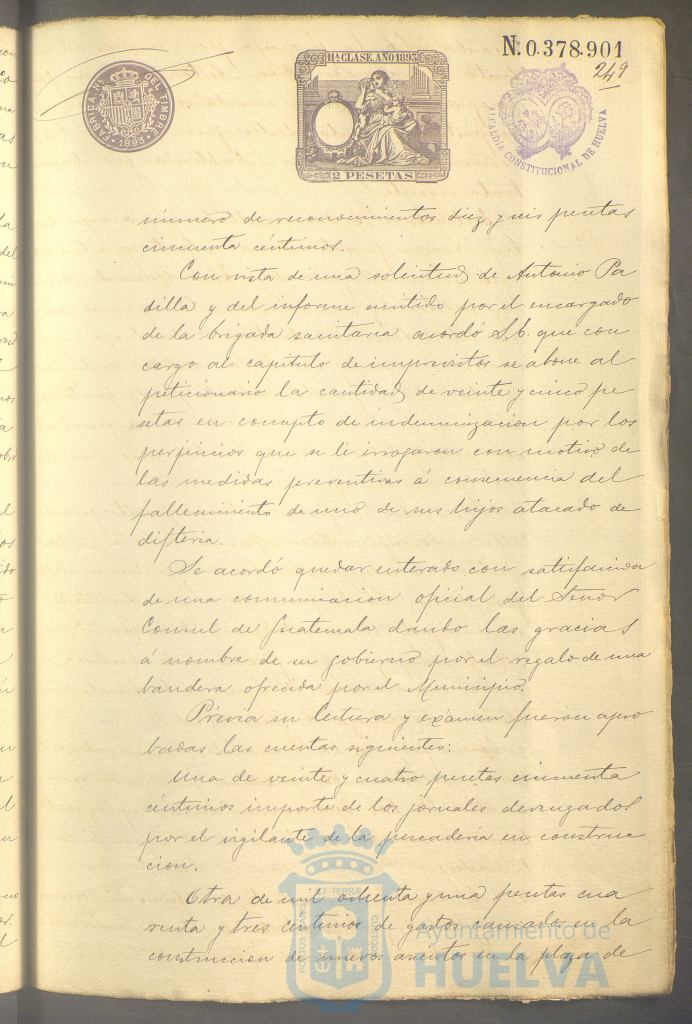 N. 0.378.901
249
11ª CLASE. AÑO 1893
2 PESETAS
FABRICA Nª. DEL TIMBRE
1893
ALCALDÍA CONSTITUCIONAL DE HUELVA
número de reconocimientos diez y seis pesetas
cincuenta céntimos.
Con vista de una solicitud de Antonio Pa
dilla y del informe emitido por el encargado
de la brigada sanitaria acordó S.E. que con
cargo al capítulo de imprevistos se abone al
peticionario la cantidad de veinte y cinco pe
setas en concepto de indemnizacion por los
perjuicios que se le irrogaron con motivo de
las medidas preventivas á consecuencia del
fallecimiento de uno de sus hijos atacado de
difteria.
Se acordó quedar enterado con satisfaccion
de una comunicacion oficial del Señor
Consul de Guatemala dando las gracias
á nombre de su gobierno por el regalo de una
bandera ofrecida por el Municipio.
Prévia su lectura y exámen fueron apro
badas las cuentas siguientes:
Una de veinte y cuatro pesetas cincuenta
céntimos importe de los jornales devengados
por el vigilante de la pescadería en construc
cion.
Otra de mil ochenta y una pesetas cua
renta y tres céntimos de gastos causados en la
construccion de nuevos asientos en la plaza de
PORTUS MARIS ET TERRAE CUSTODIA
Ayuntamiento de
HUELVA